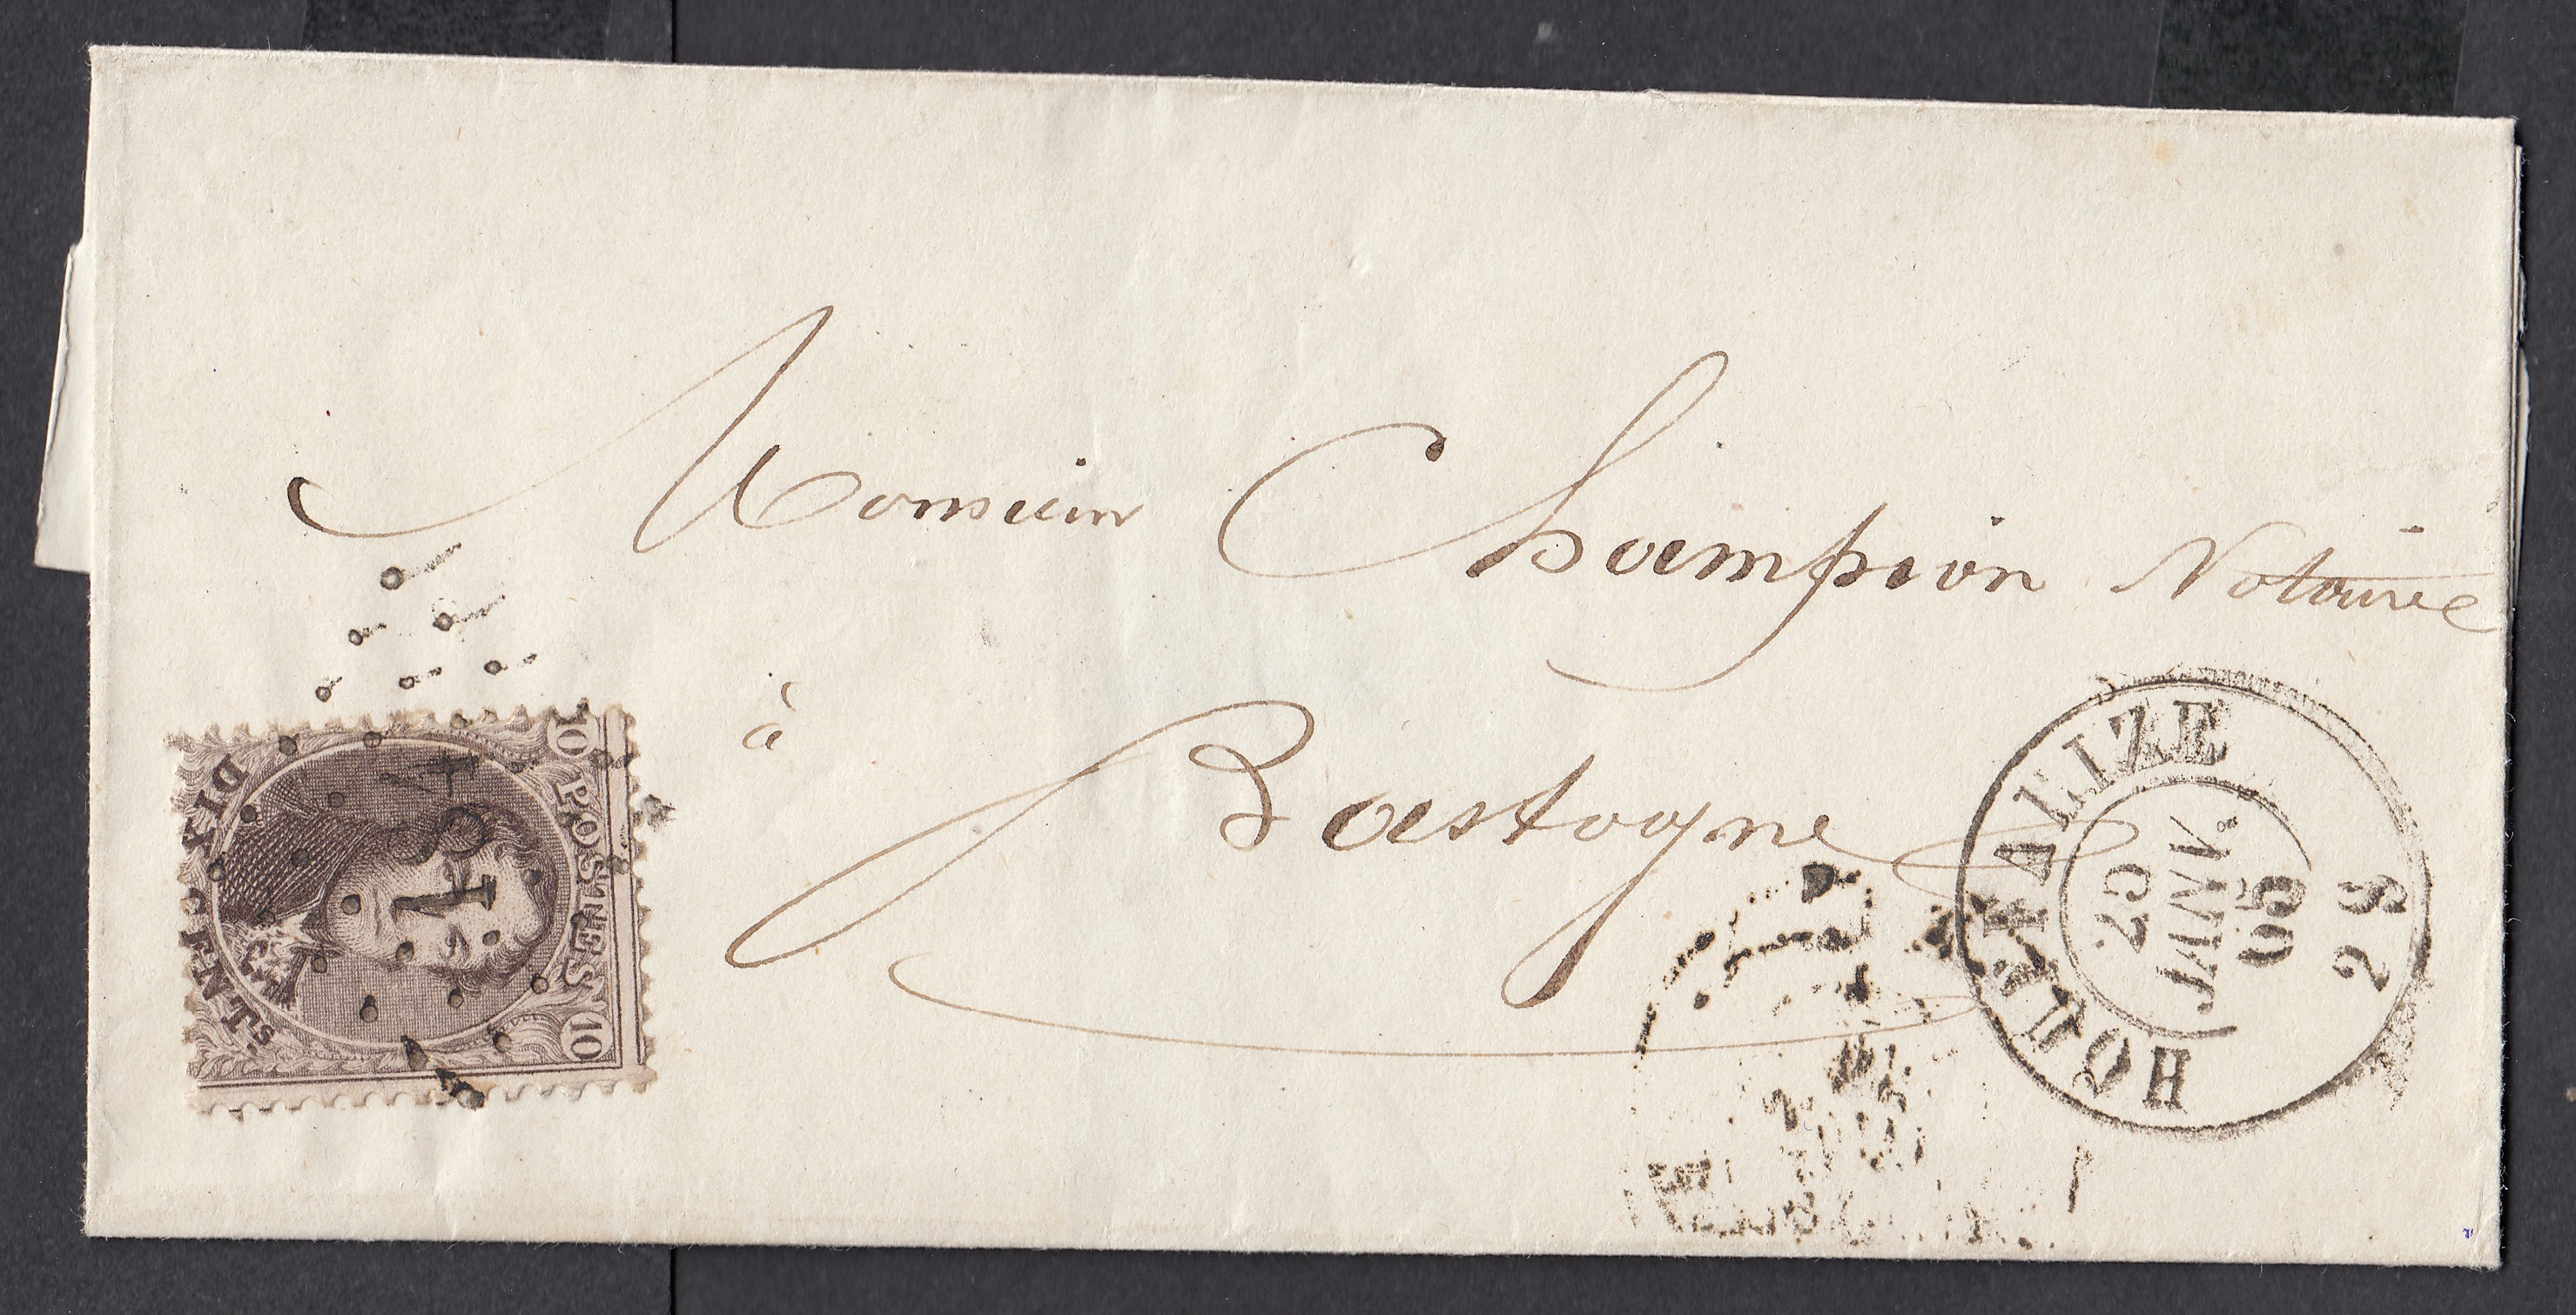 Monsieur Champion Notaire
à
Bastogne
10 POSTES 10
DIX CENT.ES
HOUFFALIZE
25
JANV.
65
2 S